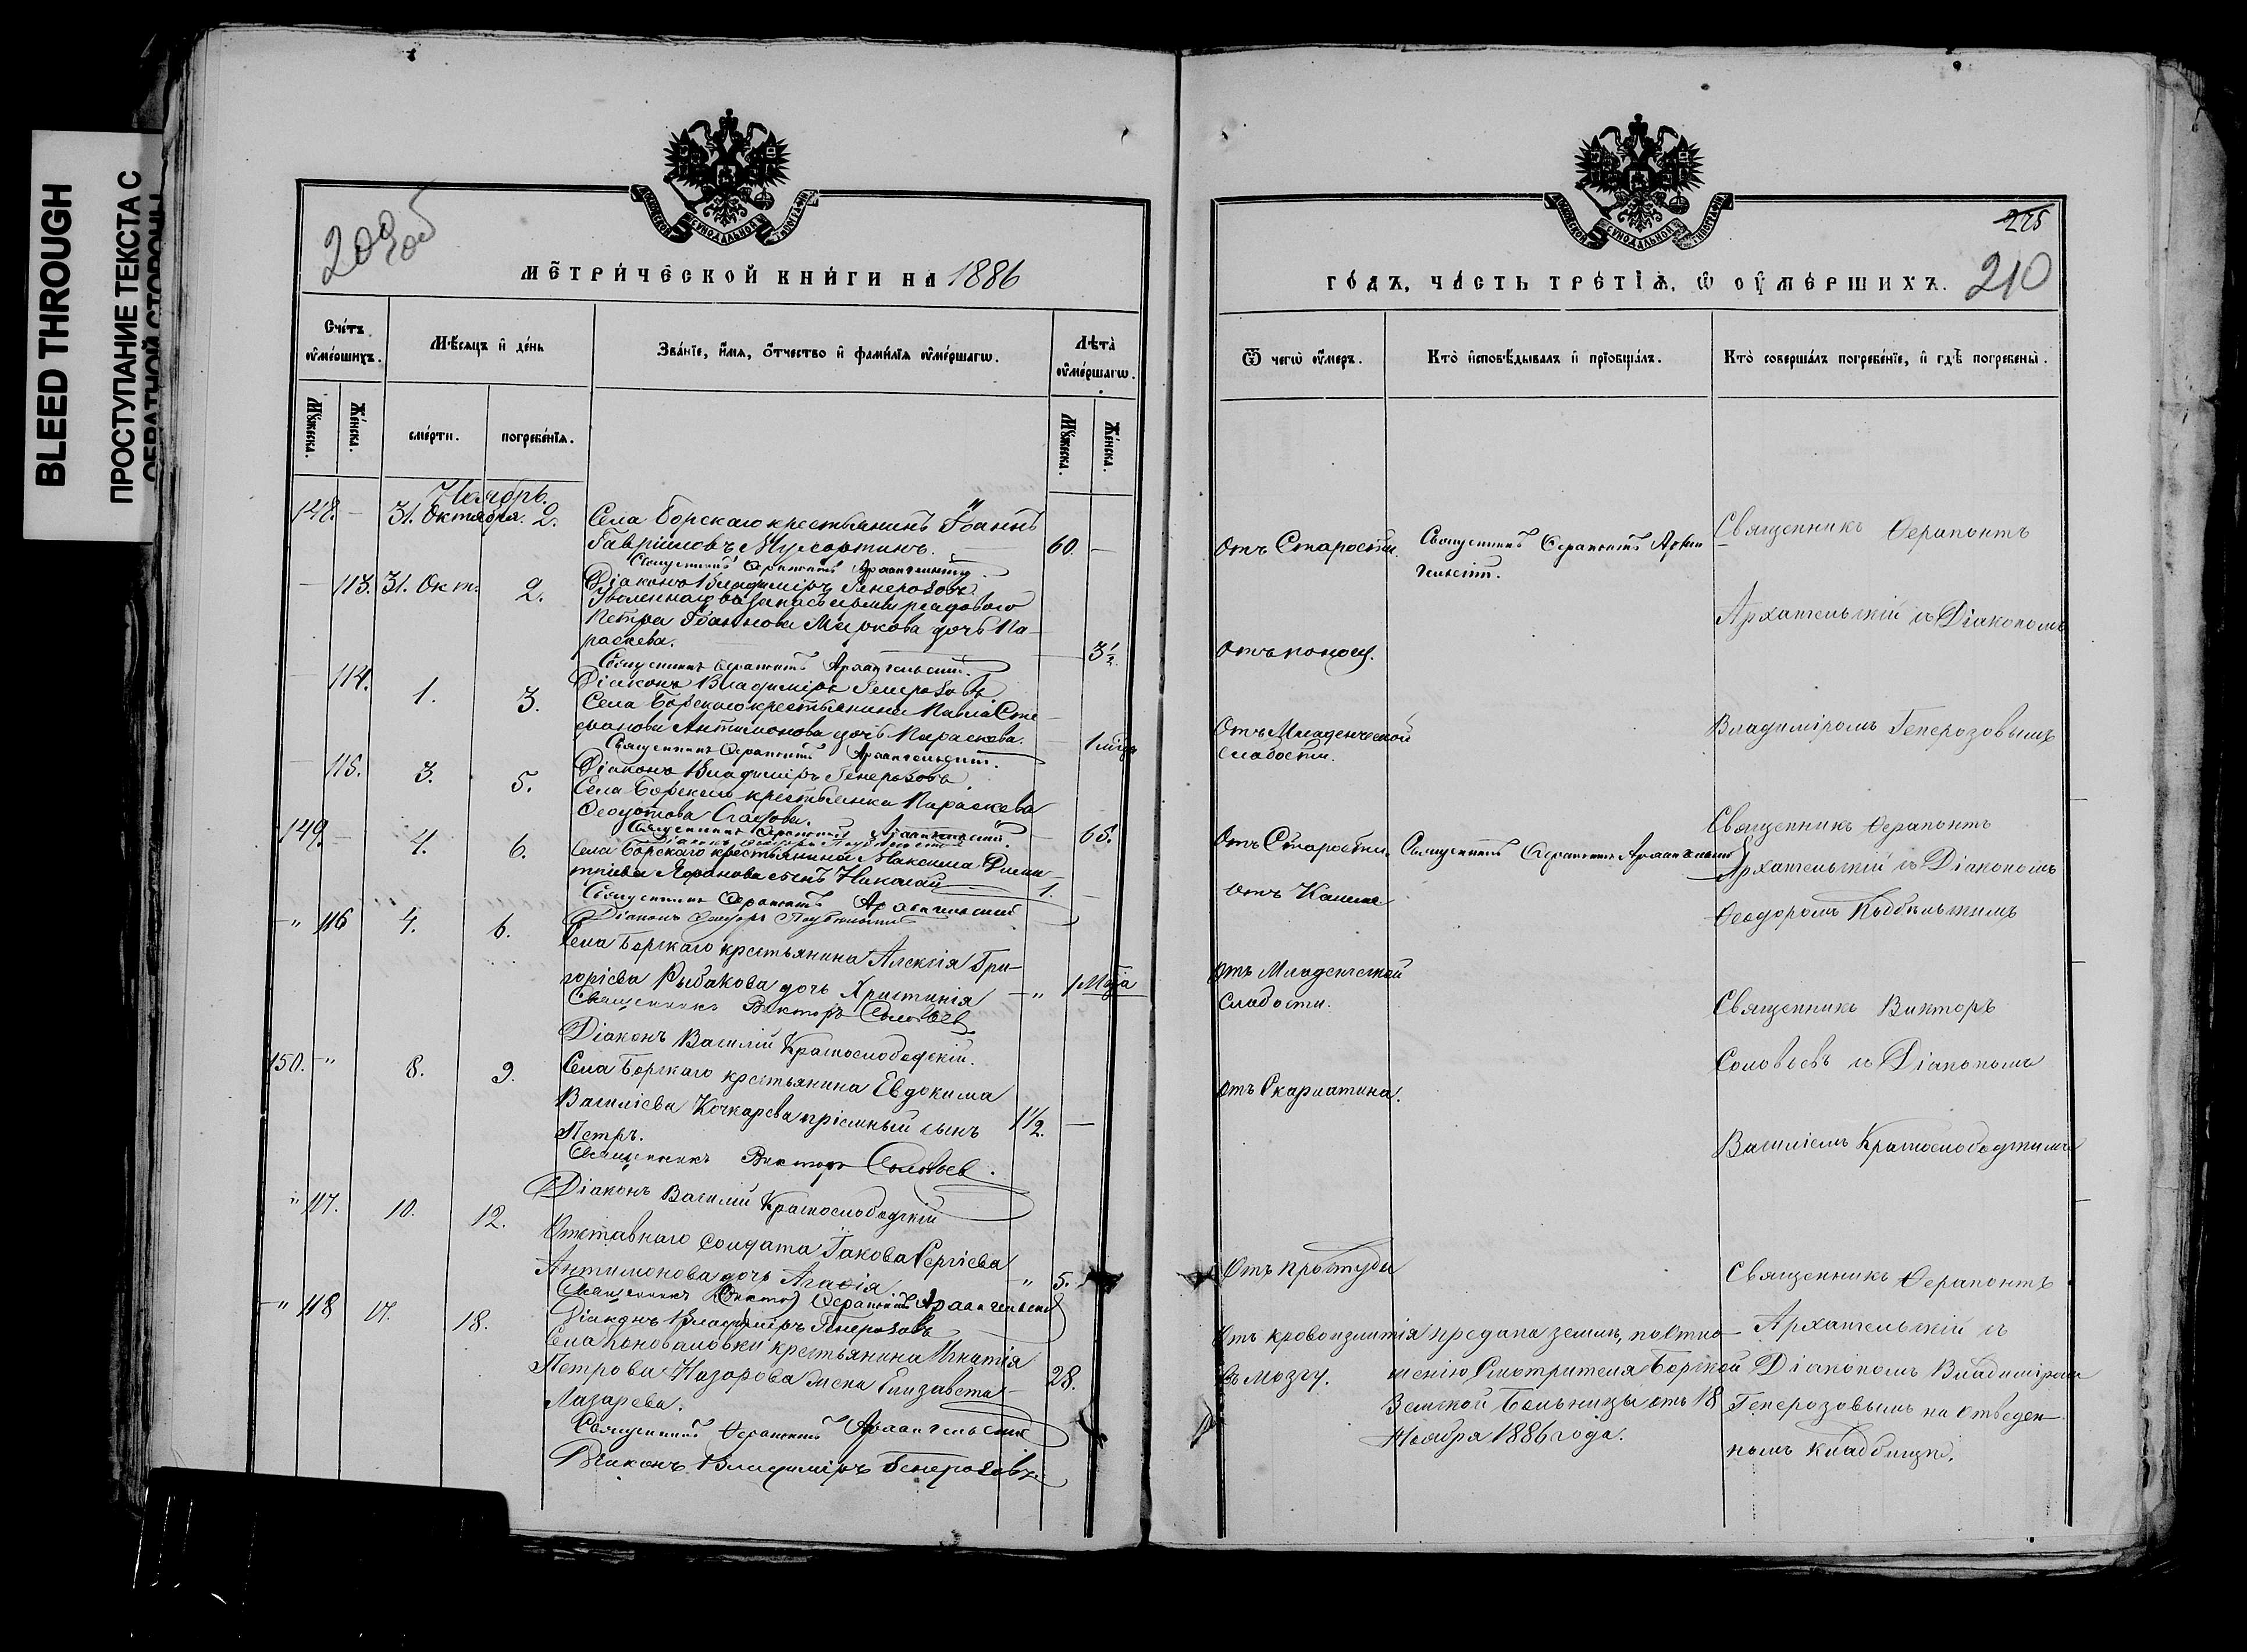 BLEED THROUGH
ПРОСТУПАНИЕ ТЕКСТА С
ОБРАТНОЙ СТОРОНЫ
209об
МЕТРИЧЕСКОЙ КНИГИ НА 1886
Счетъ
умершихъ.
Мѣсяцъ и день
Званіе, имя, отчество и фамилія умершагѡ.
Лѣта
умершагѡ.
Мужеска.
Женска.
смерти.
погребенія.
Мужеска.
Женска.
Ноябрь.
148. — 31. Октября. 2. Села Борскаго крестьянинъ Іоаннъ
Гавріиловъ 60. —
Священникъ Ѳерапонтъ Архангельскій.
Діаконъ Владиміръ Генерозовъ
— 113. 31. Окт. 2. Уволеннаго въ запасъ арміи рядового
Петра Іоаннова Маркова дочь Па-
раскева. 3 1/2
Священникъ Ѳерапонтъ Архангельскій.
Діаконъ Владиміръ Генерозовъ
114. 1. 3. Села Борскаго крестьянина Павла Сте-
фанова Антимонова дочь Параскева. 1 мѣсяц
Священникъ Ѳерапонтъ Архангельскій.
Діаконъ Владиміръ Генерозовъ
115. 3. 5. Села Борскаго крестьянка Параскева
Ѳеодотова 65.
Священникъ Ѳерапонтъ Архангельскій
149. — 4. 6. Села Борскаго крестьянина Максима Дими-
тріева сынъ Николай 1. —
Священникъ Ѳерапонтъ Архангельскій
Діаконъ Ѳеодоръ
" 116 4. 6. Села Борскаго крестьянина Алексія Гри-
горіева Рыбакова дочь Христинія — " 1 мѣсяца
Священникъ Викторъ Соловьев
Діаконъ Василій Краснослободскій.
150. — " 8. 9. Села Борскаго крестьянина Евдокима
Василіева Кочкарева пріемный сынъ 1 1/2. —
Петръ.
Священникъ Викторъ Соловьев.
Діаконъ Василій Краснослободскій
" 117. 10. 12. Отставнаго солдата Іакова Сергіева
Антимонова дочь Агафія. " 5.
Священникъ Ѳерапонтъ Архангельскій
Діаконъ Владиміръ Генерозовъ
— " 118 17. 18. Села Коноваловки крестьянина Игнатія
Петрова Назарова жена Елизавета 28.
Лазарева.
Священникъ Ѳерапонтъ Архангельскій
Діаконъ Владиміръ Генерозовъ
225
210
ГОДЪ, ЧАСТЬ ТРЕТІЯ, Ѡ УМЕРШИХЪ.
Ѿ чегѡ умеръ.
Кто исповѣдывалъ и пріобщалъ.
Кто совершалъ погребеніе, и гдѣ погребены.
Отъ Старости. Священникъ Ѳерапонтъ Архан
гельскій.
Священникъ Ѳерапонтъ
Архангельскій съ Діакономъ
Отъ поносу.
Владиміромъ Генерозовымъ
Отъ Младенческой
слабости.
Священникъ Ѳерапонтъ
Отъ Старости. Священникъ Ѳерапонтъ Архангельскій
Архангельскій съ Діакономъ
Отъ Кашля
Ѳеодоромъ
Отъ Младенческой
слабости.
Священникъ Викторъ
Соловьевъ съ Діакономъ
Отъ Скарлатина.
Василіемъ Краснослободскимъ
Отъ простуды
Священникъ Ѳерапонтъ
Отъ кровоизлитія предана землѣ, по отно- Архангельскій съ
въ мозгу. шенію Смотрителя Борской Діакономъ Владиміромъ
Земской Больницы отъ 18 Генерозовымъ на отведен-
Ноября 1886 года. номъ кладбищѣ.